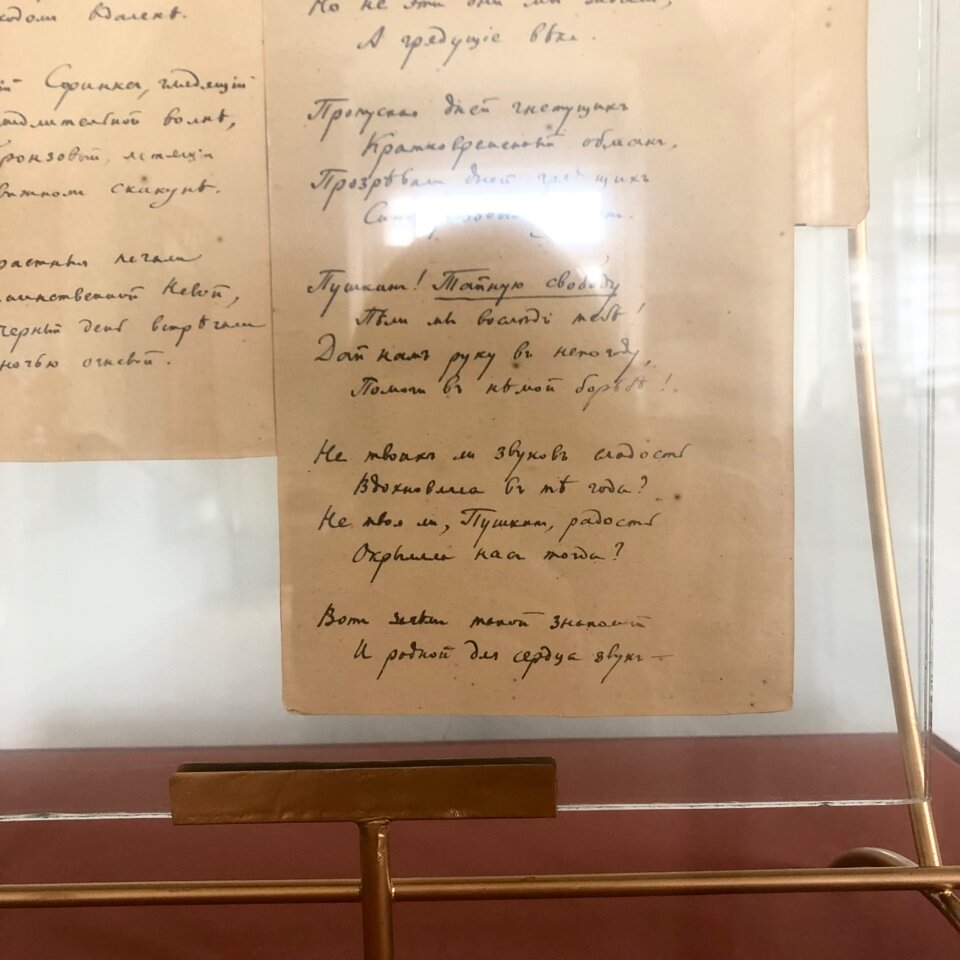 ходомъ вдалекѣ.
й Сфинксъ, глядящій
едлительной волнѣ,
ронзовый, летящій
вижномъ скакунѣ.
растныя печали
аинственной Невой,
черный день встрѣчали
ночью огневой.
Но не эти дни мы звали,
А грядущіе вѣка.
Пропуская дней гнетущихъ
Кратковременный обманъ,
Прозрѣвали дней грядущихъ
Пушкинъ! Тайную свободу
Пѣли мы вослѣдъ тебѣ!
Дай намъ руку въ непогоду,
Помоги въ нѣмой борьбѣ!
Не твоихъ ли звуковъ сладость
Вдохновляла въ тѣ года?
Не твоя ли, Пушкинъ, радость
Окрыляла насъ тогда?
Вотъ зачѣмъ такой знакомый
И родной для сердца звукъ —